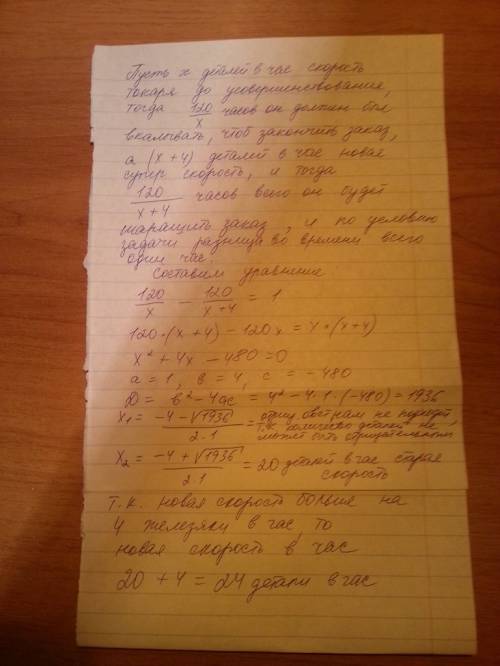 Пусть x деталей в час скорость
токаря до усовершенствования,
тогда 120/x часов он должен был
вкалывать, чтоб закончить заказ,
а (x+4) деталей в час новая
супер скорость, и тогда
120/(x+4) часов всего он будет
шарашить заказ, и по условию
задачи разница во времени всего
один час.
Составим уравнение
120/x − 120/(x+4) = 1
120·(x+4) − 120x = x·(x+4)
x² + 4x − 480 = 0
a = 1, b = 4, c = −480
D = b² − 4ac = 4² − 4·1·(−480) = 1936
x₁ = (−4 − √1936)/(2·1) = ответ нам не подойдёт
т.к. количество деталей не
может быть отрицательным
x₂ = (−4 + √1936)/(2·1) = 20 деталей в час старая
скорость
т.к. новая скорость больше на
4 железяки в час, то
новая скорость в час
20 + 4 = 24 детали в час